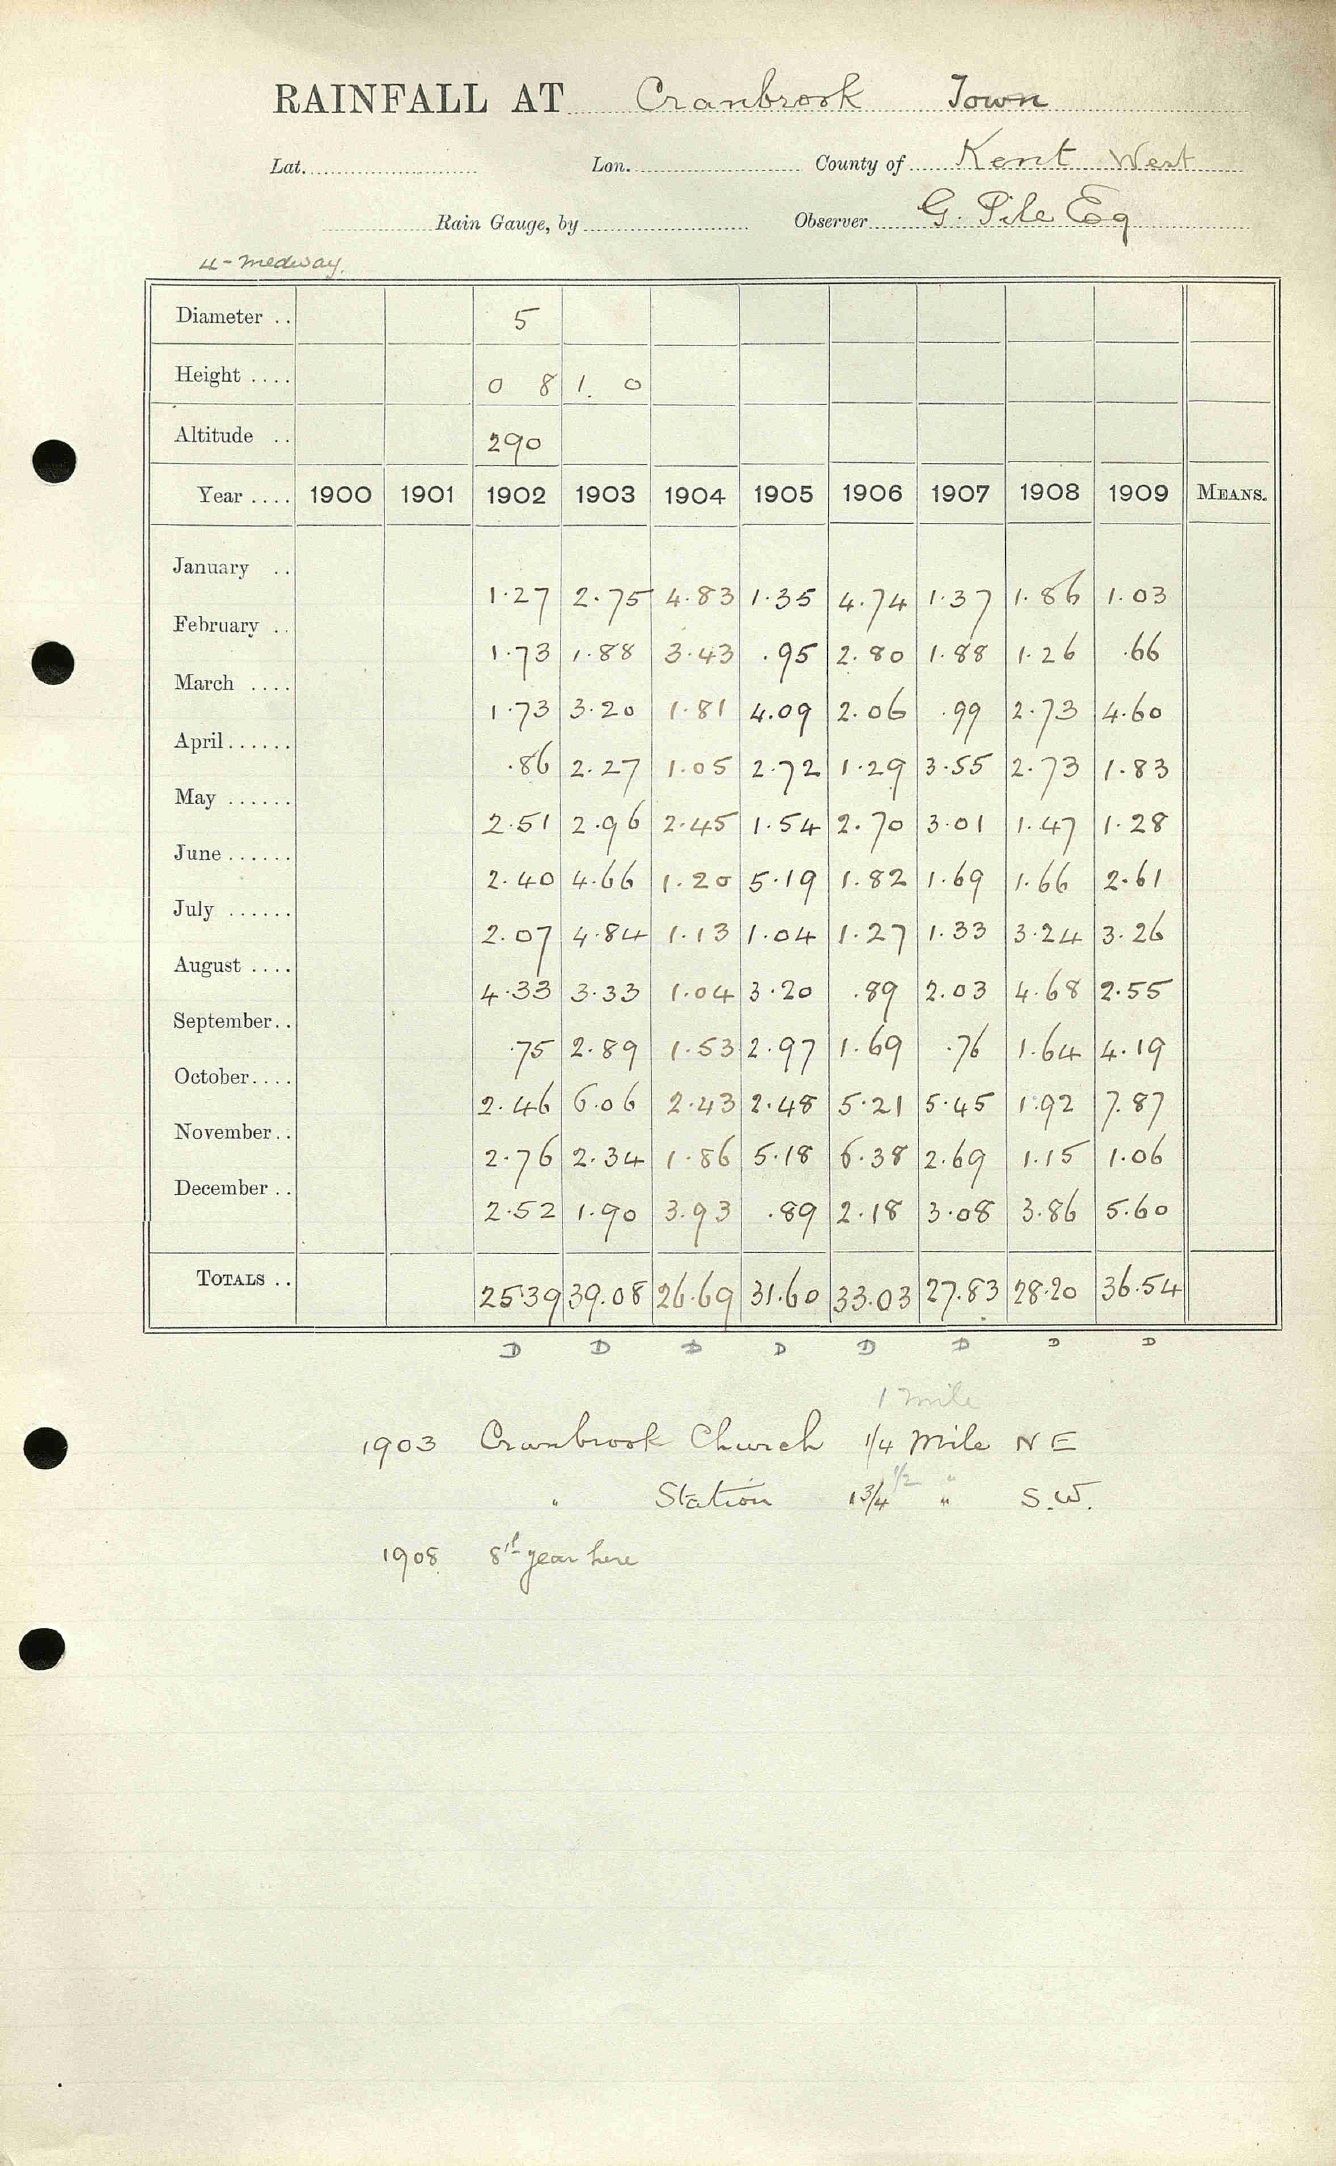 RAINFALL AT Cranbrook Town
Lat. Lon. County of Kent West
Rain Gauge, by Observer G. Pile Esq
4-Medway.
Diameter .. 5
Height .... 0 8 1. 0
Altitude .. 290
Year .... 1900 1901 1902 1903 1904 1905 1906 1907 1908 1909 MEANS.
January .. 1.27 2.75 4.83 1.35 4.74 1.37 1.86 1.03
February .. 1.73 1.88 3.43 .95 2.80 1.88 1.26 .66
March .... 1.73 3.20 1.81 4.09 2.06 .99 2.73 4.60
April...... .86 2.27 1.05 2.72 1.29 3.55 2.73 1.83
May ...... 2.51 2.96 2.45 1.54 2.70 3.01 1.47 1.28
June...... 2.40 4.66 1.20 5.19 1.82 1.69 1.66 2.61
July ...... 2.07 4.84 1.13 1.04 1.27 1.33 3.24 3.26
August .... 4.33 3.33 1.04 3.20 .89 2.03 4.68 2.55
September.. .75 2.89 1.53 2.97 1.69 .76 1.64 4.19
October.... 2.46 6.06 2.43 2.48 5.21 5.45 1.92 7.87
November.. 2.76 2.34 1.86 5.18 6.38 2.69 1.15 1.06
December .. 2.52 1.90 3.93 .89 2.18 3.08 3.86 5.60
TOTALS .. 25.39 39.08 26.69 31.60 33.03 27.83 28.20 36.54
D D D D D D D D
1 mile
1903 Cranbrook Church 1/4 Mile NE
1/2 "
" Station 1 3/4 " S.W.
1908 8th year here